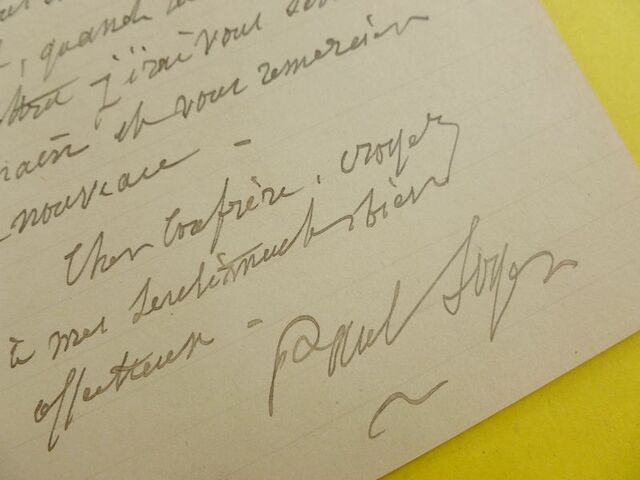 , quand
j'irai vous
et vous remercier
nouveau –
Cher Confrère, croyez
à mes sentiments bien
affectueux –
Paul Soyer